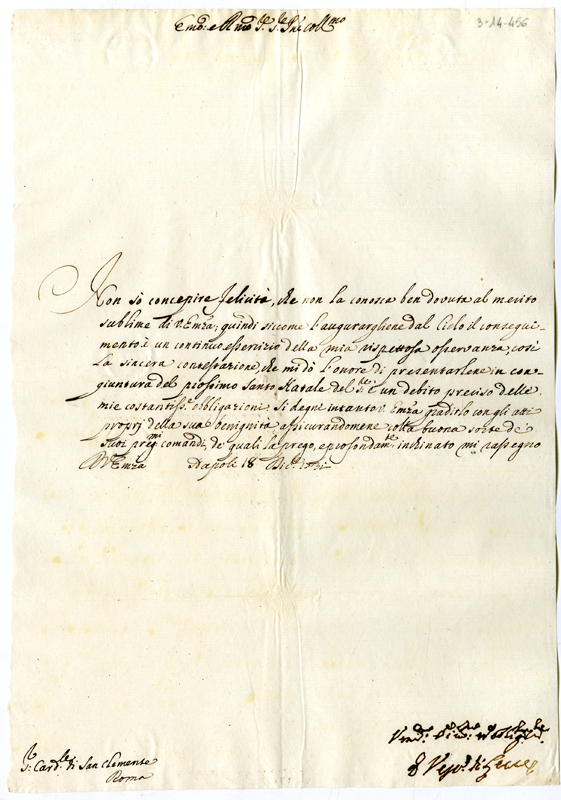 3-14-456
Emo: e Rmo Sre. Sre. Pne Collmo
Non sò concepire felicità, che non la conosca ben dovuta al merito
sublime di V.Emza; quindi sicome l'augurarghiene dal Cielo il consegui-
mento è un continuo essercizio della mia rispettosa osservanza; così
la sincera contestazione, che mi dò l'onore di presentarlene in con-
giuntura del prossimo Santo Natale del Sre. è un debito preciso delle
mie costantisse. obbligazioni. Si degni intanto V. Emza gradirlo con gli atti
proprj della sua benignità assicurandomene colla buona sorte de'
suoi pregmi comandi, de' quali la prego, e profondamte. inchinato mi rassegno
D V Emza Napoli 18 Dice.
Sr. Cardle. di San Clemente
Roma
Il Vesco. di